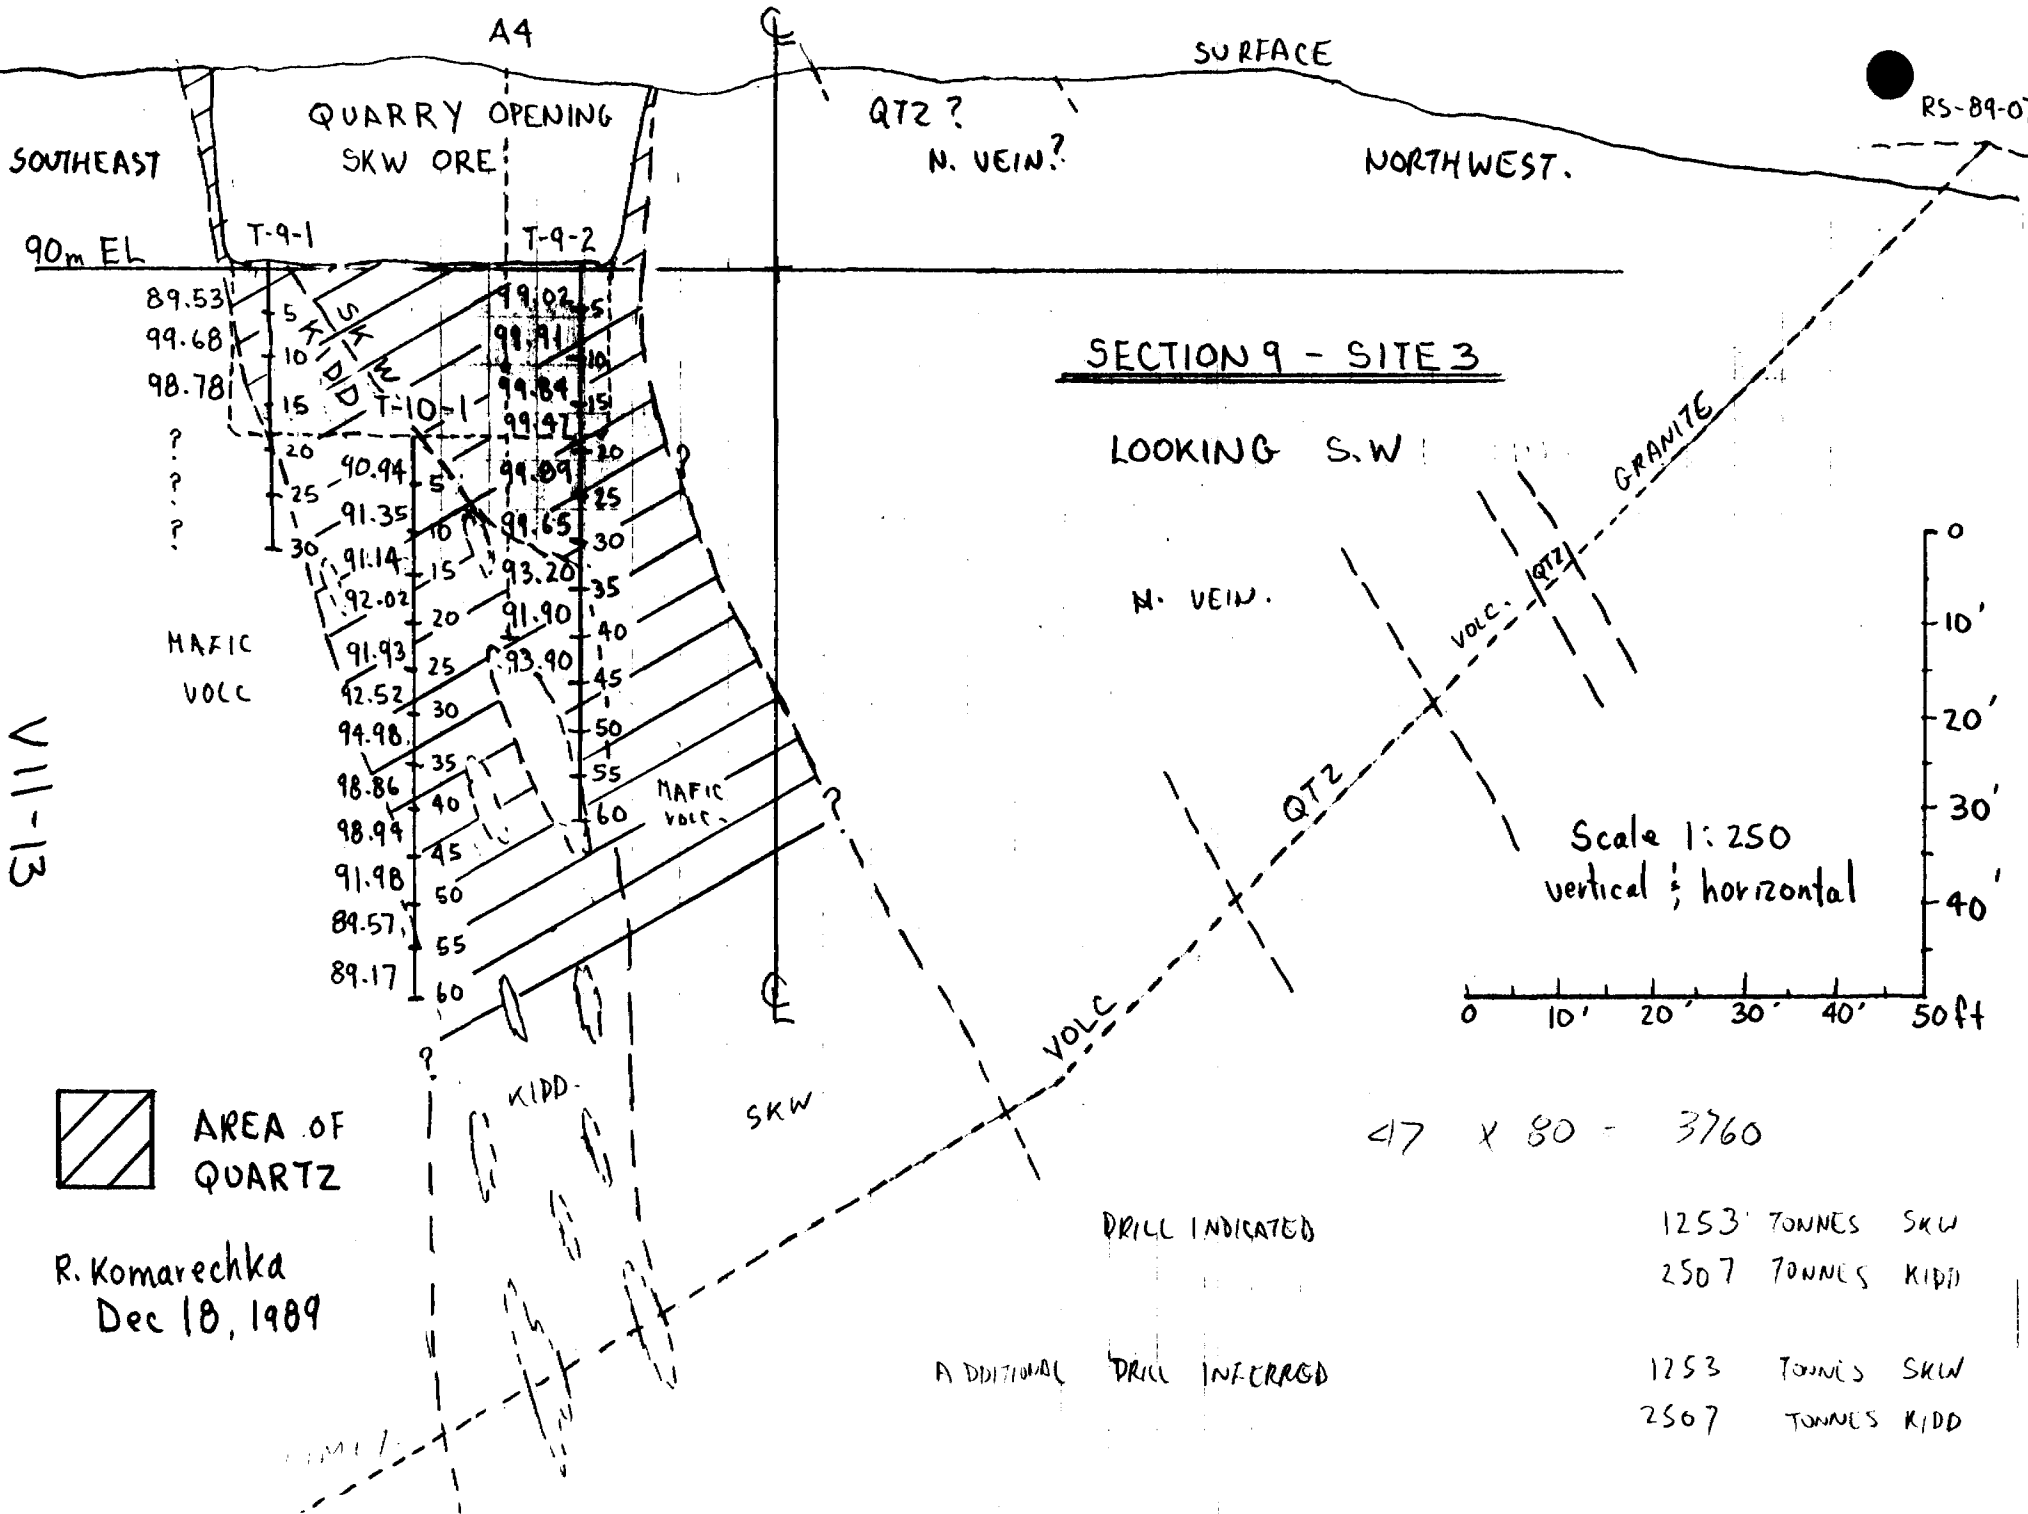 A4
℄
SURFACE
RS-89-07
QUARRY OPENING
SKW ORE
QTZ ?
N. VEIN.?
SOUTHEAST
NORTHWEST.
90m EL
T-9-1
T-9-2
89.53
99.68
98.78
?
?
?
5
10
15
20
25
30
SKW
KIDD
99.02
99.91
99.84
99.47
99.89
99.65
93.20
91.90
93.90
5
10
15
20
25
30
35
40
45
50
55
60
T-10-1
90.94
91.35
91.14
92.02
91.93
92.52
94.98
98.86
98.94
91.98
89.57
89.17
5
10
15
20
25
30
35
40
45
50
55
60
?
?
?
MAFIC
VOLC
MAFIC
VOLC.
℄
SECTION 9 - SITE 3
LOOKING S.W
N. VEIN.
GRANITE
QTZ
VOLC.
QTZ
VOLC
0
10'
20'
30'
40'
Scale 1:250
vertical & horizontal
0 10' 20' 30' 40' 50ft
VII-13
KIDD.
SKW
AREA OF
QUARTZ
R. Komarechka
Dec 18, 1989
47 x 80 = 3760
DRILL INDICATED 1253 TONNES SKW
2507 TONNES KIDD
ADDITIONAL DRILL INFERRED 1253 TONNES SKW
2507 TONNES KIDD